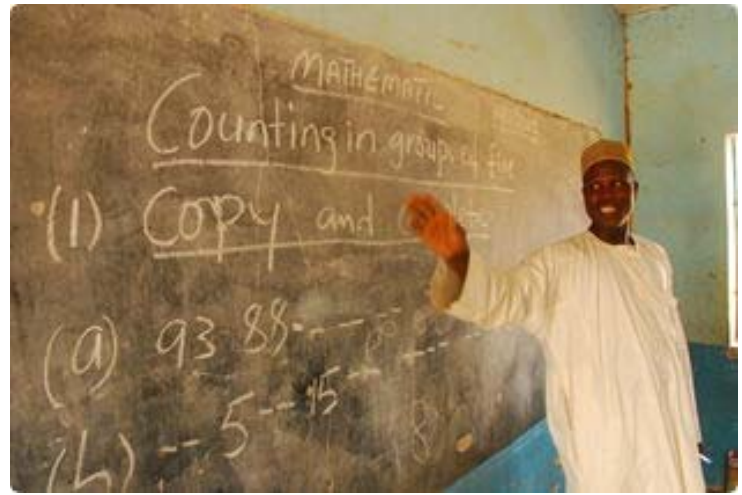 MATHEMATIC
Counting in groups of five
(1) Copy and
(a) 93 88
(b) -- 5 -- 15 --